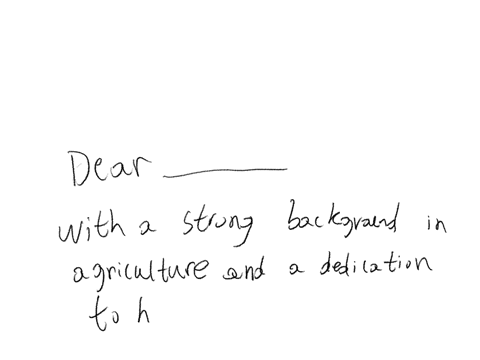 Dear ________
with a strong background in
agriculture and a dedication
to h